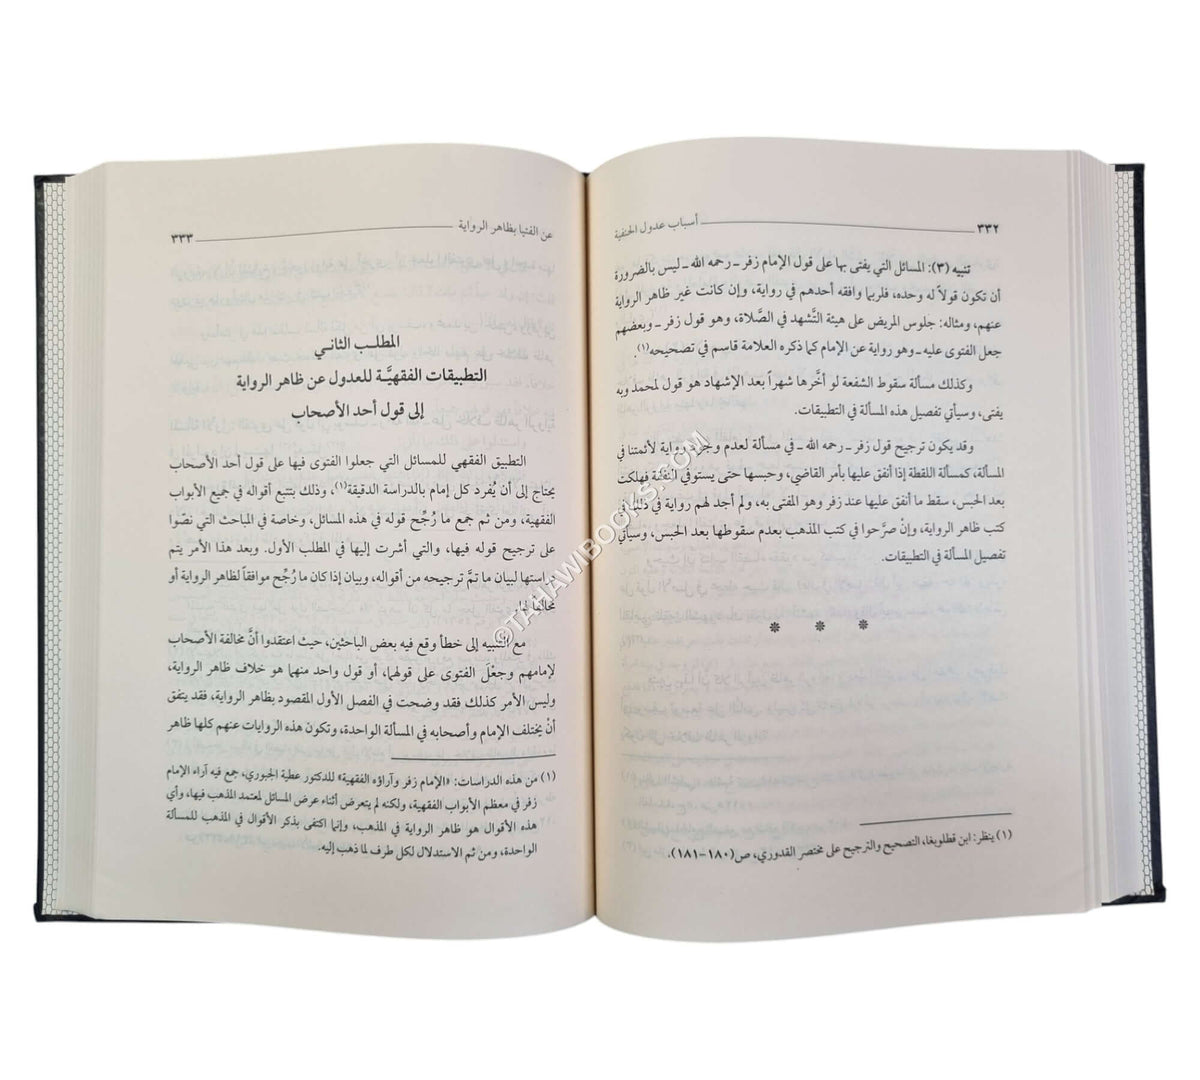 ٣٣٢ أسباب عدول الحنفية
تنبيه (٣): المسائل التي يفتى بها على قول الإمام زفر ـ رحمه الله ـ ليس بالضرورة
أن تكون قولاً له وحده، فلربما وافقه أحدهم في رواية، وإن كانت غير ظاهر الرواية
عنهم، ومثاله: جلوس المريض على هيئة التَّشهد في الصَّلاة، وهو قول زفر ـ وبعضهم
جعل الفتوى عليه ـ وهو رواية عن الإمام كما ذكره العلامة قاسم في تصحيحه(١).
وكذلك مسألة سقوط الشفعة لو أخَّرها شهراً بعد الإشهاد هو قول لمحمد وبه
يفتى، وسيأتي تفصيل هذه المسألة في التطبيقات.
وقد يكون ترجيح قول زفر ـ رحمه الله ـ في مسألة لعدم وجود رواية لأئمتنا في
المسألة، كمسألة اللقطة إذا أنفق عليها بأمر القاضي، وحبسها حتى يستوفي النفقة فهلكت
بعد الحبس، سقط ما أنفق عليها عند زفر وهو المفتى به، ولم أجد لهم رواية في ذلك في
كتب ظاهر الرواية، وإنْ صرَّحوا في كتب المذهب بعدم سقوطها بعد الحبس، وسيأتي
تفصيل المسألة في التطبيقات.
* * *
(١) ينظر: ابن قطلوبغا، التصحيح والترجيح على مختصر القدوري، ص(١٨٠-١٨١).
عن الفتيا بظاهر الرواية ٣٣٣
المطلب الثاني
التطبيقات الفقهيَّة للعدول عن ظاهر الرواية
إلى قول أحد الأصحاب
التطبيق الفقهي للمسائل التي جعلوا الفتوى فيها على قول أحد الأصحاب
يحتاج إلى أن يُفرد كل إمام بالدراسة الدقيقة(١)، وذلك بتتبع أقواله في جميع الأبواب
الفقهية، ومن ثم جمع ما رُجِّح قوله في هذه المسائل، وخاصة في المباحث التي نصّوا
على ترجيح قوله فيها، والتي أشرت إليها في المطلب الأول. وبعد هذا الأمر يتم
دراستها لبيان ما تمَّ ترجيحه من أقواله، وبيان إذا كان ما رُجِّح موافقاً لظاهر الرواية أو
مخالفاً لها.
مع التنبيه إلى خطأ وقع فيه بعض الباحثين، حيث اعتقدوا أنَّ مخالفة الأصحاب
لإمامهم وجعْلَ الفتوى على قولهما، أو قول واحد منهما هو خلاف ظاهر الرواية،
وليس الأمر كذلك فقد وضحت في الفصل الأول المقصود بظاهر الرواية، فقد يتفق
أنْ يختلف الإمام وأصحابه في المسألة الواحدة، وتكون هذه الروايات عنهم كلها ظاهر
(١) من هذه الدراسات: «الإمام زفر وآراؤه الفقهية» للدكتور عطية الجبوري، جمع فيه آراء الإمام
زفر في معظم الأبواب الفقهية، ولكنه لم يتعرض أثناء عرض المسائل لمعتمد المذهب فيها، وأي
هذه الأقوال هو ظاهر الرواية في المذهب، وإنما اكتفى بذكر الأقوال في المذهب للمسألة
الواحدة، ومن ثم الاستدلال لكل طرف لما ذهب إليه.
©TAHAWIBOOKS.COM